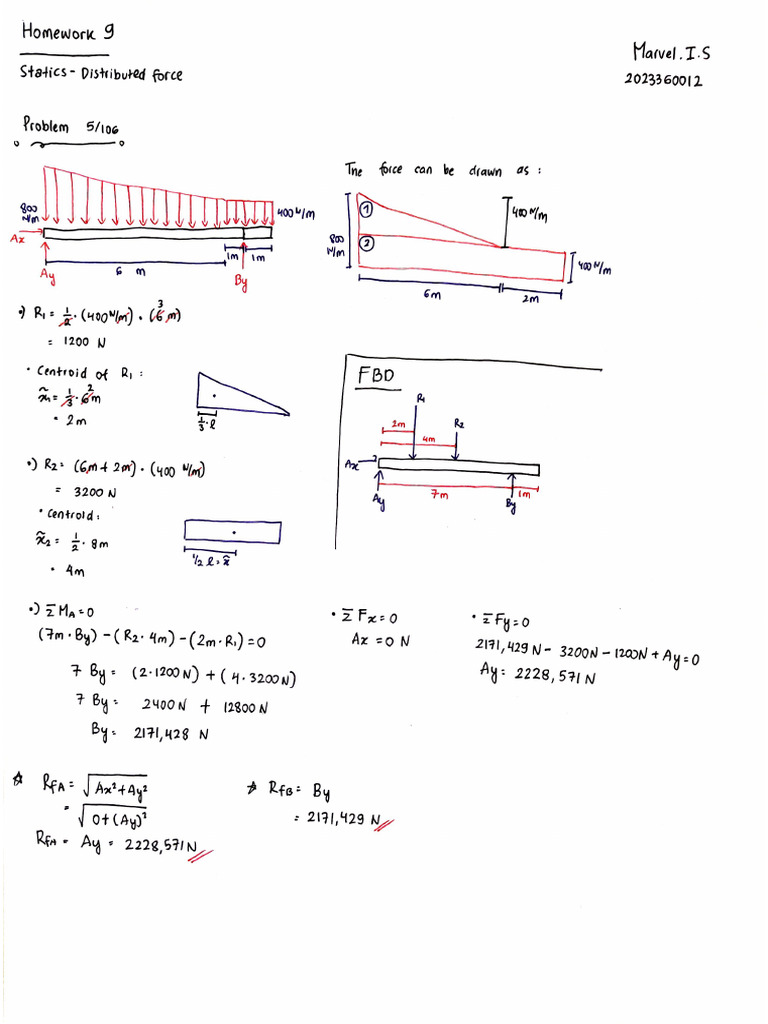 Homework 9
Marvel.I.S
Statics - Distributed force
2023360012
Problem 5/106
The force can be drawn as :
800 N/m
400 N/m
Ax
1m
1m
6 m
Ay
By
①
②
400 N/m
800 N/m
400 N/m
6m
2m
•) R1 = 1/2 · (400 N/m) · (6 m) 3
= 1200 N
• Centroid of R1 :
x̃1 = 1/3 · 6 m 2
= 2m
1/3 · l
FBD
R1
R2
2m
4m
Ax
Ay
7m
1m
By
•) R2 = (6m + 2m) · (400 N/m)
= 3200 N
• Centroid :
x̃2 = 1/2 · 8m
= 4m
1/2 l = x̃
•) ΣMA = 0
(7m · By) – (R2 · 4m) – (2m · R1) = 0
7 By = (2 · 1200 N) + (4 · 3200 N)
7 By = 2400 N + 12800 N
By = 2171,428 N
• ΣFx = 0
Ax = 0 N
• ΣFy = 0
2171,429 N – 3200N – 1200N + Ay = 0
Ay = 2228,571 N
☆ RfA = √(Ax² + Ay²)
= √(0 + (Ay)²)
RfA = Ay = 2228,571 N
☆ RfB = By
= 2171,429 N